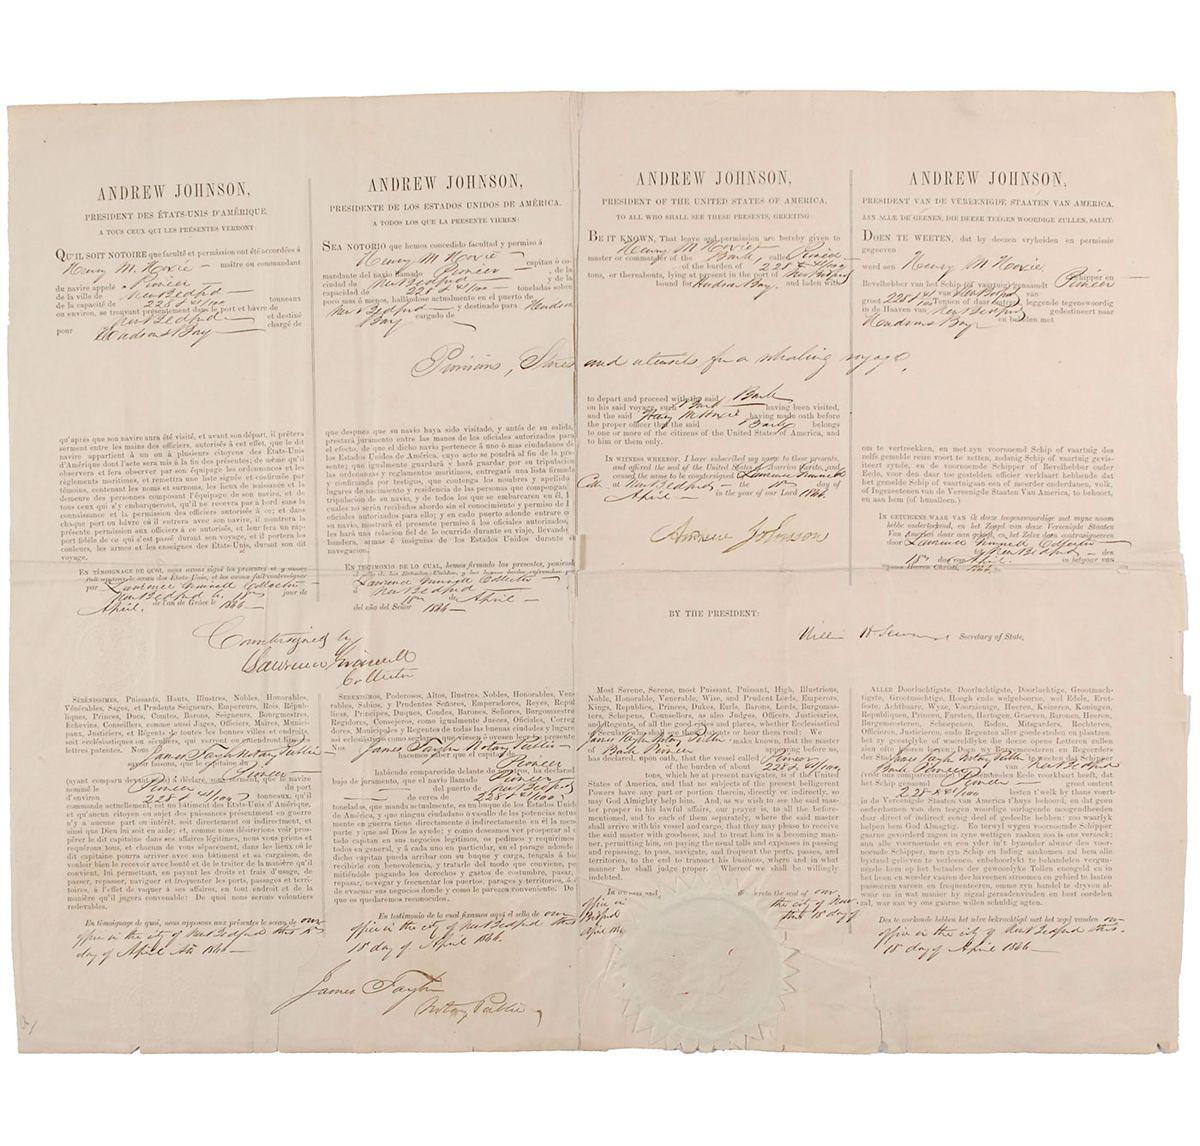 ANDREW JOHNSON,
PRESIDENT DES ÉTATS-UNIS D'AMÉRIQUE,
A TOUS CEUX QUI LES PRÉSENTES VERRONT:
QU'IL SOIT NOTOIRE que faculté et permission ont été accordées à
Henry M. Hoxie — maître ou commandant
du navire appelé Pioneer
de la ville de New Bedford
de la capacité de 228 & 41/100 tonneaux
ou environ, se trouvant présentement dans le port et hâvre de
New Bedford et destiné
pour Hudsons Bay chargé de
qu'après que son navire aura été visité, et avant son départ, il prêtera
serment entre les mains des officiers, autorisés à cet effet, que le dit
navire appartient à un ou à plusieurs citoyens des États-Unis
d'Amérique dont l'acte sera mis à la fin des présentes; de même qu'il
observera et fera observer par son équipage les ordonnances et les
règlements maritimes, et remettra une liste signée et confirmée par
témoins, contenant les noms et surnoms, les lieux de naissance et la
demeure des personnes composant l'équipage de son navire, et de
tous ceux qui s'y embarqueront, qu'il ne recevra pas à bord sans la
connaissance et la permission des officiers autorisés à ce; et dans
chaque port ou hâvre où il entrera avec son navire, il montrera la
présente permission aux officiers à ce autorisés, et leur fera un rap-
port fidèle de ce qui s'est passé durant son voyage, et il portera les
couleurs, les armes et les enseignes des États-Unis, durant son dit
voyage.
EN TÉMOIGNAGE DE QUOI, nous avons signé les présentes et y avons
fait apposer le sceau des États-Unis, et les avons fait contresigner
par Lawrence Grinnell Collector
New Bedford le 18th jour de
April. de l'an de Grâce le 1866 —
ANDREW JOHNSON,
PRESIDENTE DE LOS ESTADOS UNIDOS DE AMÉRICA,
A TODOS LOS QUE LA PRESENTE VIEREN:
SEA NOTORIO que hemos concedido facultad y permiso á
Henry M Hoxie — capitan ó co-
mandante del navio llamado Pioneer — de la
ciudad de New Bedford y de la
capacidad de 228 & 41/100 — toneladas sobre
poco mas ó menos, hallándose actualmente en el puerto de
New Bedford — y destinado para Hudsons
Bay cargado de
que despues que su navio haya sido visitado, y antés de su salida,
prestará juramento entre las manos de los oficiales autorizados para
el efecto, de que el dicho navio pertenece á uno ó mas ciudadanos de
los Estados Unidos de América, cuyo acto se pondrá al fin de la pre-
sente; que igualmente guardará y hará guardar por su tripulacion
las ordenanzas y reglamentos maritimos, entregará una lista firmada
y confirmada por testigos, que contenga los nombres y apellidos
lugares de nacimiento y residencia de las personas que compongan
la tripulacion de su navio, y de todos los que se embarcaren en él, los
cuales no serán recibidos abordo sin el conocimiento y permiso de los
oficiales autorizados para ello; y en cado puerto adonde entrare con
su navio, mostrará el presente permiso á los oficiales autorizados, y
les hará una relacion fiel de lo ocurrido durante su viaje, llevando las
banderas, armas é insignias de los Estados Unidos durante su
navegacion.
EN TESTIMONIO DE LO CUAL, hemos firmado las presentes, poniendo
el sello de los Estados-Unidos, y las hemos hecho refrendar por
Lawrence Grinnell Collector
á New Bedford
18th de April —
del año del Señor 1866 —
ANDREW JOHNSON,
PRESIDENT OF THE UNITED STATES OF AMERICA,
TO ALL WHO SHALL SEE THESE PRESENTS, GREETING:
BE IT KNOWN, That leave and permission are hereby given to
Henry M Hoxie
master or commander of the Bark called Pioneer
of the burden of 228 & 41/100
tons, or thereabouts, lying at present in the port of New Bedford
bound for Hudsons Bay. and laden with
Provisions, Stores and utensils for a whaling voyage,
to depart and proceed with the said Bark
on his said voyage, such Bark having been visited,
and the said Henry M Hoxie having made oath before
the proper officer that the said Bark belongs
to one or more of the citizens of the United States of America, and
to him or them only.
IN WITNESS WHEREOF, I have subscribed my name to these presents,
and affixed the seal of the United States of America thereto, and
caused the same to be countersigned Lawrence Grinnell
Coll. at New Bedford the 18th day of
April — in the year of our Lord 1866.
Andrew Johnson
ANDREW JOHNSON,
PRESIDENT VAN DE VEREENIGDE STAATEN VAN AMERICA,
AAN ALLE DE GEENEN, DIE DEEZE TEEGEN WOORDIGE ZULLEN, SALUT:
DOEN TE WEETEN, dat by deezen vryheiden en permissie
gegeeven
werd aen Henry M Hoxie Schipper en
Bevelhebber van het Schip (of vaartuig) genaamdt Pioneer
groot 228 & 41/100 van New Bedford van
Tonnen of daar omtrent, leggende tegenswoordig
in de Haaven van New Bedford gedestineert naar
Hudsons Bay en belaaden met
om te vertreekken, en met zyn voornoemd Schip of vaartuig des
zelfs gemelde reize voort te zetten, zodanig Schip of vaartuig gevis-
iteert zynde, en de voornoemde Schipper of Bevelhebber onder
Eede, voor den daar toe gestelden officier verklaart hebbende dat
het gemelde Schip of vaartuig aan een of meerder onderdanen, volk,
of Ingezeetenen van de Vereenigde Staaten Van America, te behoort,
en aan hem (of hun) alleen.
IN GETUIGENIS WAAR VAN ik deeze teegenwoordige met myne naam
hebbe onderteekend, en het Zeegel van deze Vereenigde Staaten
Van America daar aan gehegt, en het Zelve doen contrasigneeren
door Lawrence Grinnell Collector
te New Bedford — den
18th dag van April. in het jaar van
onses Heeren Christi, 1866.
BY THE PRESIDENT:
William H Seward Secretary of State,
Countersigned by
Lawrence Grinnell
Collector
SÉRÉNISSIMES, Puissants, Hauts, Illustres, Nobles, Honorables,
Vénérables, Sages, et Prudents Seigneurs, Empereurs, Rois, Répub-
liques, Princes, Ducs, Comtes, Barons, Seigneurs, Bourgmestres,
Echevins, Conseillers, comme aussi Juges, Officiers, Munici-
paux, Justiciers, et Régents de toutes les bonnes villes et endroits,
soit ecclésiastiques ou séculiers, qui verront ou entendront lire les
lettres patentes. Nous James Taylor Notary Public
savoir faisons, que le capitaine du
Pioneer
(ayant comparu devant nous) a déclaré sous serment, que le navire
nommé le Pioneer du port
d'environ 228 & 41/100 tonneaux, qu'il
commande actuellement, est un bâtiment des États-Unis d'Amérique,
et qu'aucun citoyen ou sujet des puissances présentement en guerre
n'y a aucune part ou intérêt, soit directement ou indirectement, et
ainsi que Dieu lui soit en aide; et, comme nous désirerions voir pros-
pérer le dit capitaine dans ses affaires légitimes, nous vous prions et
requérons tous, et chacun de vous séparément, dans les lieux où le
dit capitaine pourra arriver avec son bâtiment et sa cargaison, de
vouloir bien le recevoir avec bonté et de le traiter de la manière qu'il
convient, lui permettant, en payant les droits et frais d'usage, de
passer, repasser, naviguer et fréquenter les ports, passages et terri-
toires, à l'effet de vaquer à ses affaires, en tout endroit et de la
manière qu'il jugera convenable: De quoi nous serons volontiers
redevables.
En témoignage de quoi, nous apposons aux présentes le sceau de our
office in the city of New Bedford this 18th
day of April AD 1866 —
SERENISIMOS, Poderosos, Altos, Ilustres, Nobles, Honorables, Vene-
rables, Sabios, y Prudentes Señores, Emperadores, Reyes, Repúb-
licas, Principes, Duques, Condes, Barones, Señores, Burgomaestres,
Regidores, Consejeros, como igualmente Jueces, Oficiales, Correg-
idores, Municipales y Regentes de todas las buenas ciudades y lugares
así eclesiásticos como seglares que viesen ó oyesen leer la presente
Nos James Taylor Notary Public —
hacemos saber que el capitan de
Pioneer
habiendo comparecido delante de nosotros, ha declarado
bajo de juramento, que el navio llamado Pioneer
del puerto de New Bedford
de cerca de 228 & 41/100
toneladas, que manda actualmente, es un buque de los Estados Unidos
de América, y que ningun ciudadano ó vasallo de las potencias actual-
mente en guerra tiene directamente ni indirectamente en él la menor
parte y que así Dios le ayude; y como deseamos ver prosperar al dicho
capitan en sus negocios legítimos, os pedimos y requirimos
todos en general, y á cada uno en particular, en el parage adonde el
dicho capitan pueda arribar con su buque y carga, tengais á bien
recibirle con benevolencia y tratarle del modo que conviene, per-
mitiéndole pagando los derechos y gastos de costumbre, pasar,
repasar, novegar y frecuentar los puertos, parages y territorios, á fin
de evacuar sus negocios donde y como le parezca conveniente: De lo
que os quedaremos reconocidos.
En testimonio de la cual firmamos aquí el sello de our
office in the city of New Bedford this
18 day of April 1866.
James Taylor
Notary Public
MOST Serene, Serene, most Puissant, Puissant, High, Illustrious,
Noble, Honorable, Venerable, Wise, and Prudent Lords, Emperors,
Kings, Republics, Princes, Dukes, Earls, Barons, Lords, Burgomas-
ters, Schepens, Counsellors, as also Judges, Officers, Justiciaries,
and Regents, of all the good cities and places, whether Ecclesiastical
or Secular, who shall see these patents or hear them read: We
James Taylor Notary Public, make known, that the master
of Bark Pioneer appearing before us,
has declared, upon oath, that the vessel called Pioneer
of the burden of about 228 & 41/100
tons, which he at present navigates, is of the United
States of America, and that no subjects of the present belligerent
Powers have any part or portion therein, directly or indirectly, so
may God Almighty help him. And, as we wish to see the said mas-
ter prosper in his lawful affairs, our prayer is, to all the before-
mentioned, and to each of them separately, where the said master
shall arrive with his vessel and cargo, that they may please to receive
the said master with goodness, and to treat him in a becoming man-
ner, permitting him, on paying the usual tolls and expenses in passing
and repassing, to pass, navigate, and frequent the ports, passes, and
territories, to the end to transact his business, where and in what
manner he shall judge proper. Whereof we shall be willingly
indebted.
In witness and hereto the seal of our
office in the city of New
Bedford this 18 day of
April 1866
ALLER Doorluchtigste, Doorluchtigste, Doorluchtige, Grootmach-
tigste, Grootmachtige, Hoogh ende welgeboorne, wel Edele, Ernt-
feste, Achtbaare, Wyze, Voorzienige, Heeren, Keizeren, Koningen,
Republiquen, Prinsen, Fursten, Hartogen, Graeven, Baronen, Heeren,
Burgermeesteren, Schepenen, Raden, Misgaders, Rechteren,
Officieren, Justicieren, ende Regenten aller goede steeden en plaatsen,
het zy geestelyke of waereldlyke die deeze opene Letteren zullen
zien ofte hooren leezen: Doen wy Burgermeesteren en Regeerders
der Stad James Taylor Notary Public te weeten dat Schipper
Bark Pioneer van New Bedford
(voor ons compareerende) by Solemneelen Eede voorklaart heeft, dat
het Schip genaemd Pioneer groot omtrent
228 & 41/100 lasten t'welk hy thans voert-
in de Vereenigde Staaten van America t'huys behoord, en dat geen
onderdaanen van den teegen wordige oorloogende Moogendheden
daar direct of indirect eenig deel of gedeelte hebben: zoo waarlyk
helpen hem God Almagtig. En terwyl wygen voornoemde Schipper
gaarne gevorderd zagen in zyne wettigen zaaken zoo is ons verzoek; aan
allen voornoemde en een yder in t'byzonder alwaar den voor-
noemende Schipper, men zyn Schip en lading aankomen zal hem alle
bystand gelieven te verleenen, enbehoorlykt te behandelen vergun-
nende hem op het betaalen der gewoonlyke Tollen eenongeld en in
in het heen en weeder vaaren der haevenen stroomen en gebied te laaten
passeeren vaeren en frequenteeren, omme zyn handel te dryven al-
waar en in wat manier by zigzal geraadenvinden en best oordeelen
zal, waar aan wy ons gaarne willen schuldig agten.
Des te oorkonde hebben wy deze bekrachtigd met het zegel vanden our
office in the city of New Bedford this.
18 day of April 1866 —